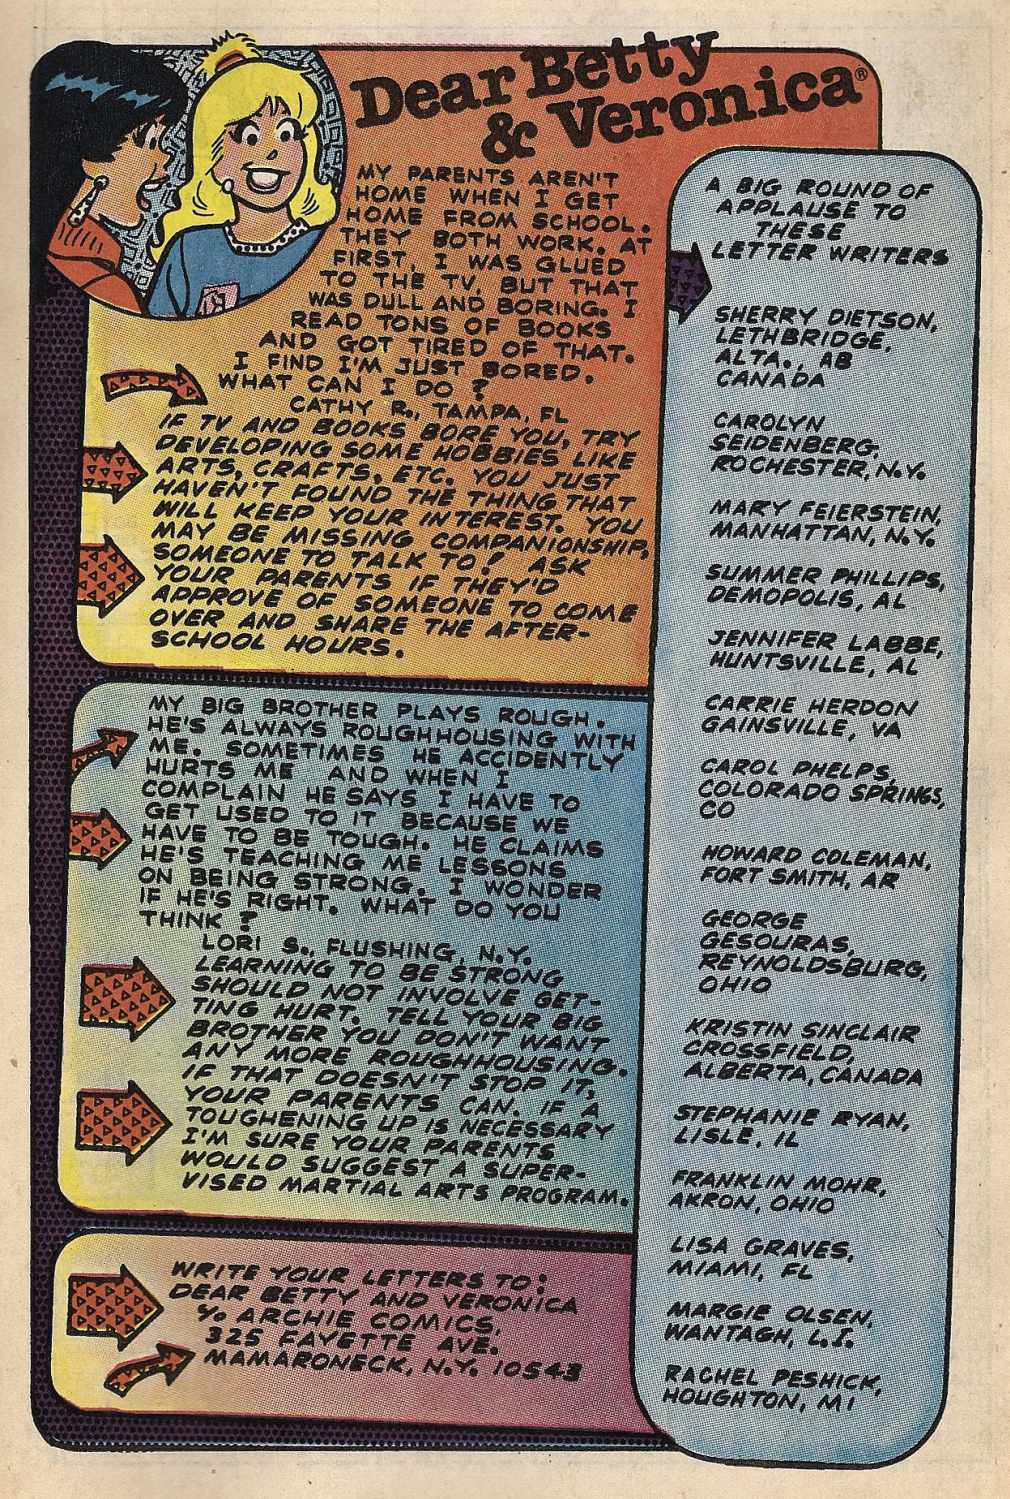 Dear Betty
& Veronica®
MY PARENTS AREN'T
HOME WHEN I GET
HOME FROM SCHOOL.
THEY BOTH WORK. AT
FIRST, I WAS GLUED
TO THE TV. BUT THAT
WAS DULL AND BORING. I
READ TONS OF BOOKS
AND GOT TIRED OF THAT.
I FIND I'M JUST BORED.
WHAT CAN I DO?
CATHY R., TAMPA, FL
IF TV AND BOOKS BORE YOU, TRY
DEVELOPING SOME HOBBIES LIKE
ARTS, CRAFTS, ETC. YOU JUST
HAVEN'T FOUND THE THING THAT
WILL KEEP YOUR INTEREST. YOU
MAY BE MISSING COMPANIONSHIP,
SOMEONE TO TALK TO! ASK
YOUR PARENTS IF THEY'D
APPROVE OF SOMEONE TO COME
OVER AND SHARE THE AFTER-
SCHOOL HOURS.
MY BIG BROTHER PLAYS ROUGH.
HE'S ALWAYS ROUGHHOUSING WITH
ME. SOMETIMES HE ACCIDENTLY
HURTS ME AND WHEN I
COMPLAIN HE SAYS I HAVE TO
GET USED TO IT BECAUSE WE
HAVE TO BE TOUGH. HE CLAIMS
HE'S TEACHING ME LESSONS
ON BEING STRONG. I WONDER
IF HE'S RIGHT. WHAT DO YOU
THINK?
LORI S., FLUSHING, N.Y.
LEARNING TO BE STRONG
SHOULD NOT INVOLVE GET-
TING HURT. TELL YOUR BIG
BROTHER YOU DON'T WANT
ANY MORE ROUGHHOUSING.
IF THAT DOESN'T STOP IT,
YOUR PARENTS CAN. IF A
TOUGHENING UP IS NECESSARY
I'M SURE YOUR PARENTS
WOULD SUGGEST A SUPER-
VISED MARTIAL ARTS PROGRAM.
WRITE YOUR LETTERS TO:
DEAR BETTY AND VERONICA
c/o ARCHIE COMICS,
325 FAYETTE AVE.
MAMARONECK, N.Y. 10543
A BIG ROUND OF
APPLAUSE TO
THESE
LETTER WRITERS
SHERRY DIETSON,
LETHBRIDGE,
ALTA., AB
CANADA
CAROLYN
SEIDENBERG,
ROCHESTER, N.Y.
MARY FEIERSTEIN,
MANHATTAN, N.Y.
SUMMER PHILLIPS,
DEMOPOLIS, AL
JENNIFER LABBE,
HUNTSVILLE, AL
CARRIE HERDON
GAINSVILLE, VA
CAROL PHELPS,
COLORADO SPRINGS,
CO
HOWARD COLEMAN,
FORT SMITH, AR
GEORGE
GESOURAS,
REYNOLDSBURG,
OHIO
KRISTIN SINCLAIR
CROSSFIELD,
ALBERTA, CANADA
STEPHANIE RYAN,
LISLE, IL
FRANKLIN MOHR,
AKRON, OHIO
LISA GRAVES,
MIAMI, FL
MARGIE OLSEN,
WANTAGH, L.I.
RACHEL PESHICK,
HOUGHTON, MI